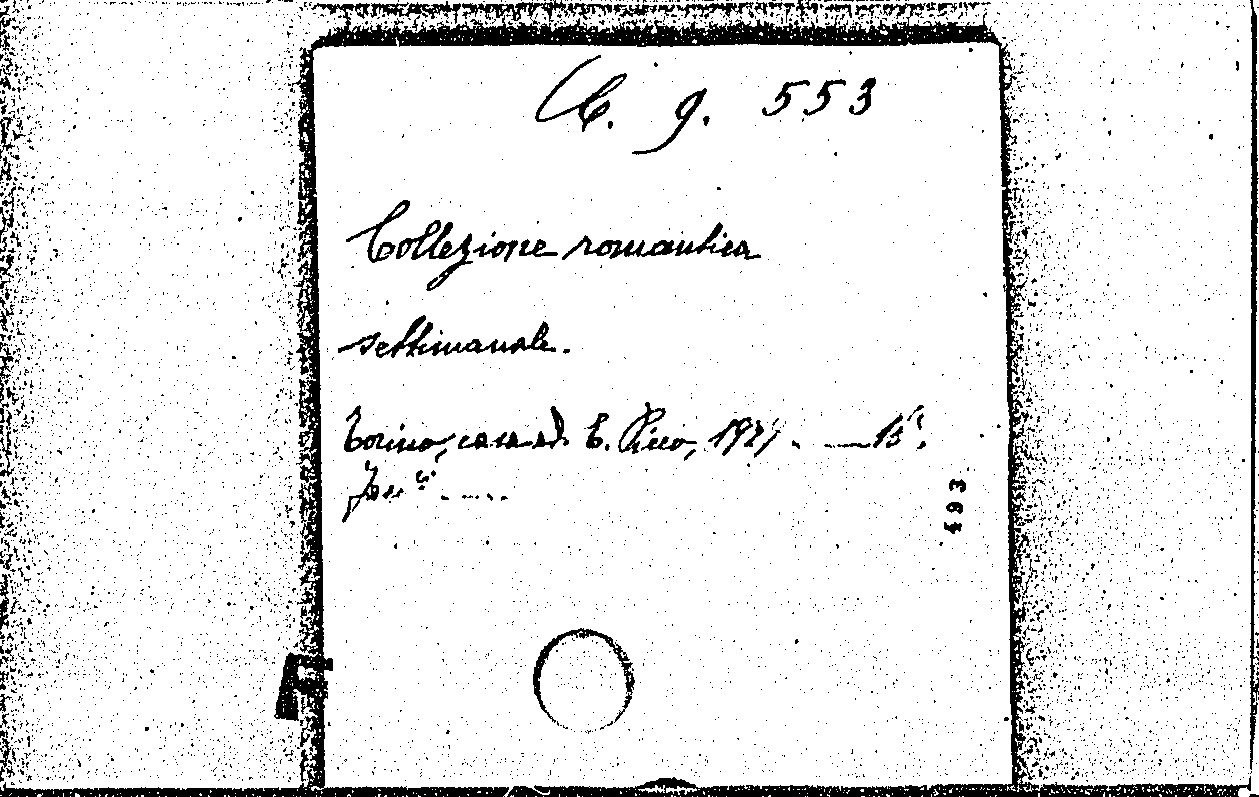 C. g. 553
Collezione romantica
settimanale.
Torino, casa ed. E. Picco, 1927. — 16°.
493